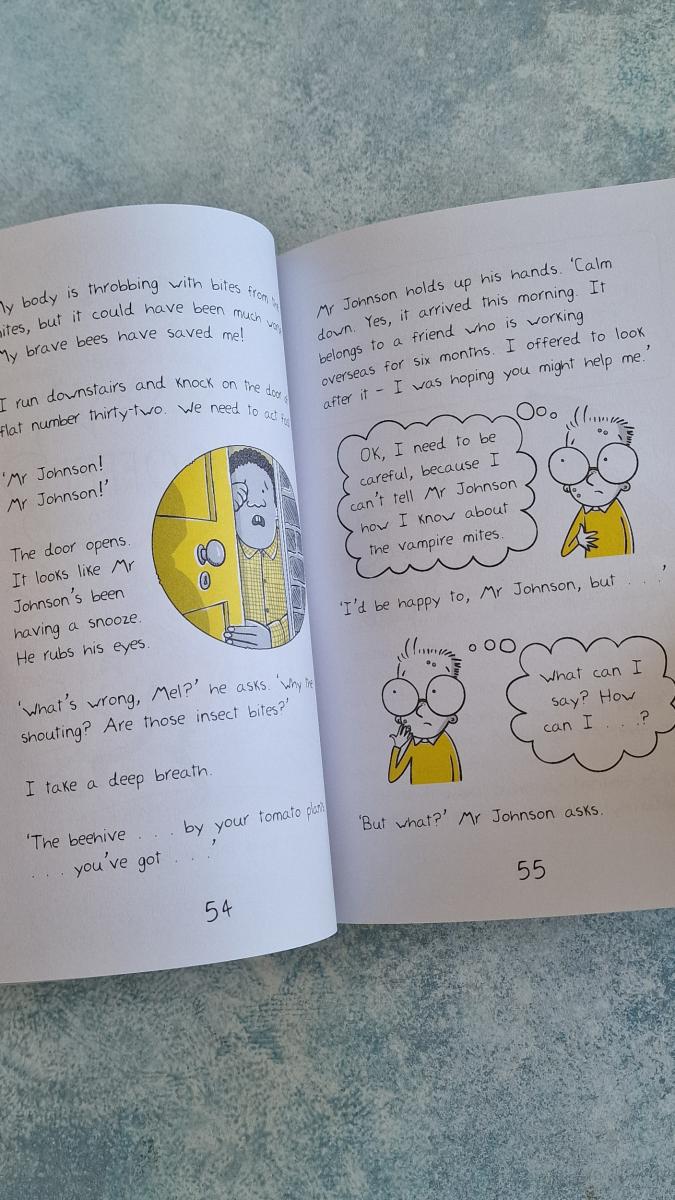 My body is throbbing with bites from the
mites, but it could have been much
My brave bees have saved me!
I run downstairs and knock on the door of
flat number thirty-two. We need to act
'Mr Johnson!
Mr Johnson!'
The door opens.
It looks like Mr
Johnson's been
having a snooze.
He rubs his eyes.
'What's wrong, Mel?' he asks. 'Why the
shouting? Are those insect bites?'
I take a deep breath.
'The beehive . . . by your tomato plants
. . . you've got . . .'
54
Mr Johnson holds up his hands. 'Calm
down. Yes, it arrived this morning. It
belongs to a friend who is working
overseas for six months. I offered to look
after it – I was hoping you might help me.'
OK, I need to be
careful, because I
can't tell Mr Johnson
how I know about
the vampire mites.
'I'd be happy to, Mr Johnson, but . . .'
What can I
say? How
can I . . .?
'But what?' Mr Johnson asks.
55